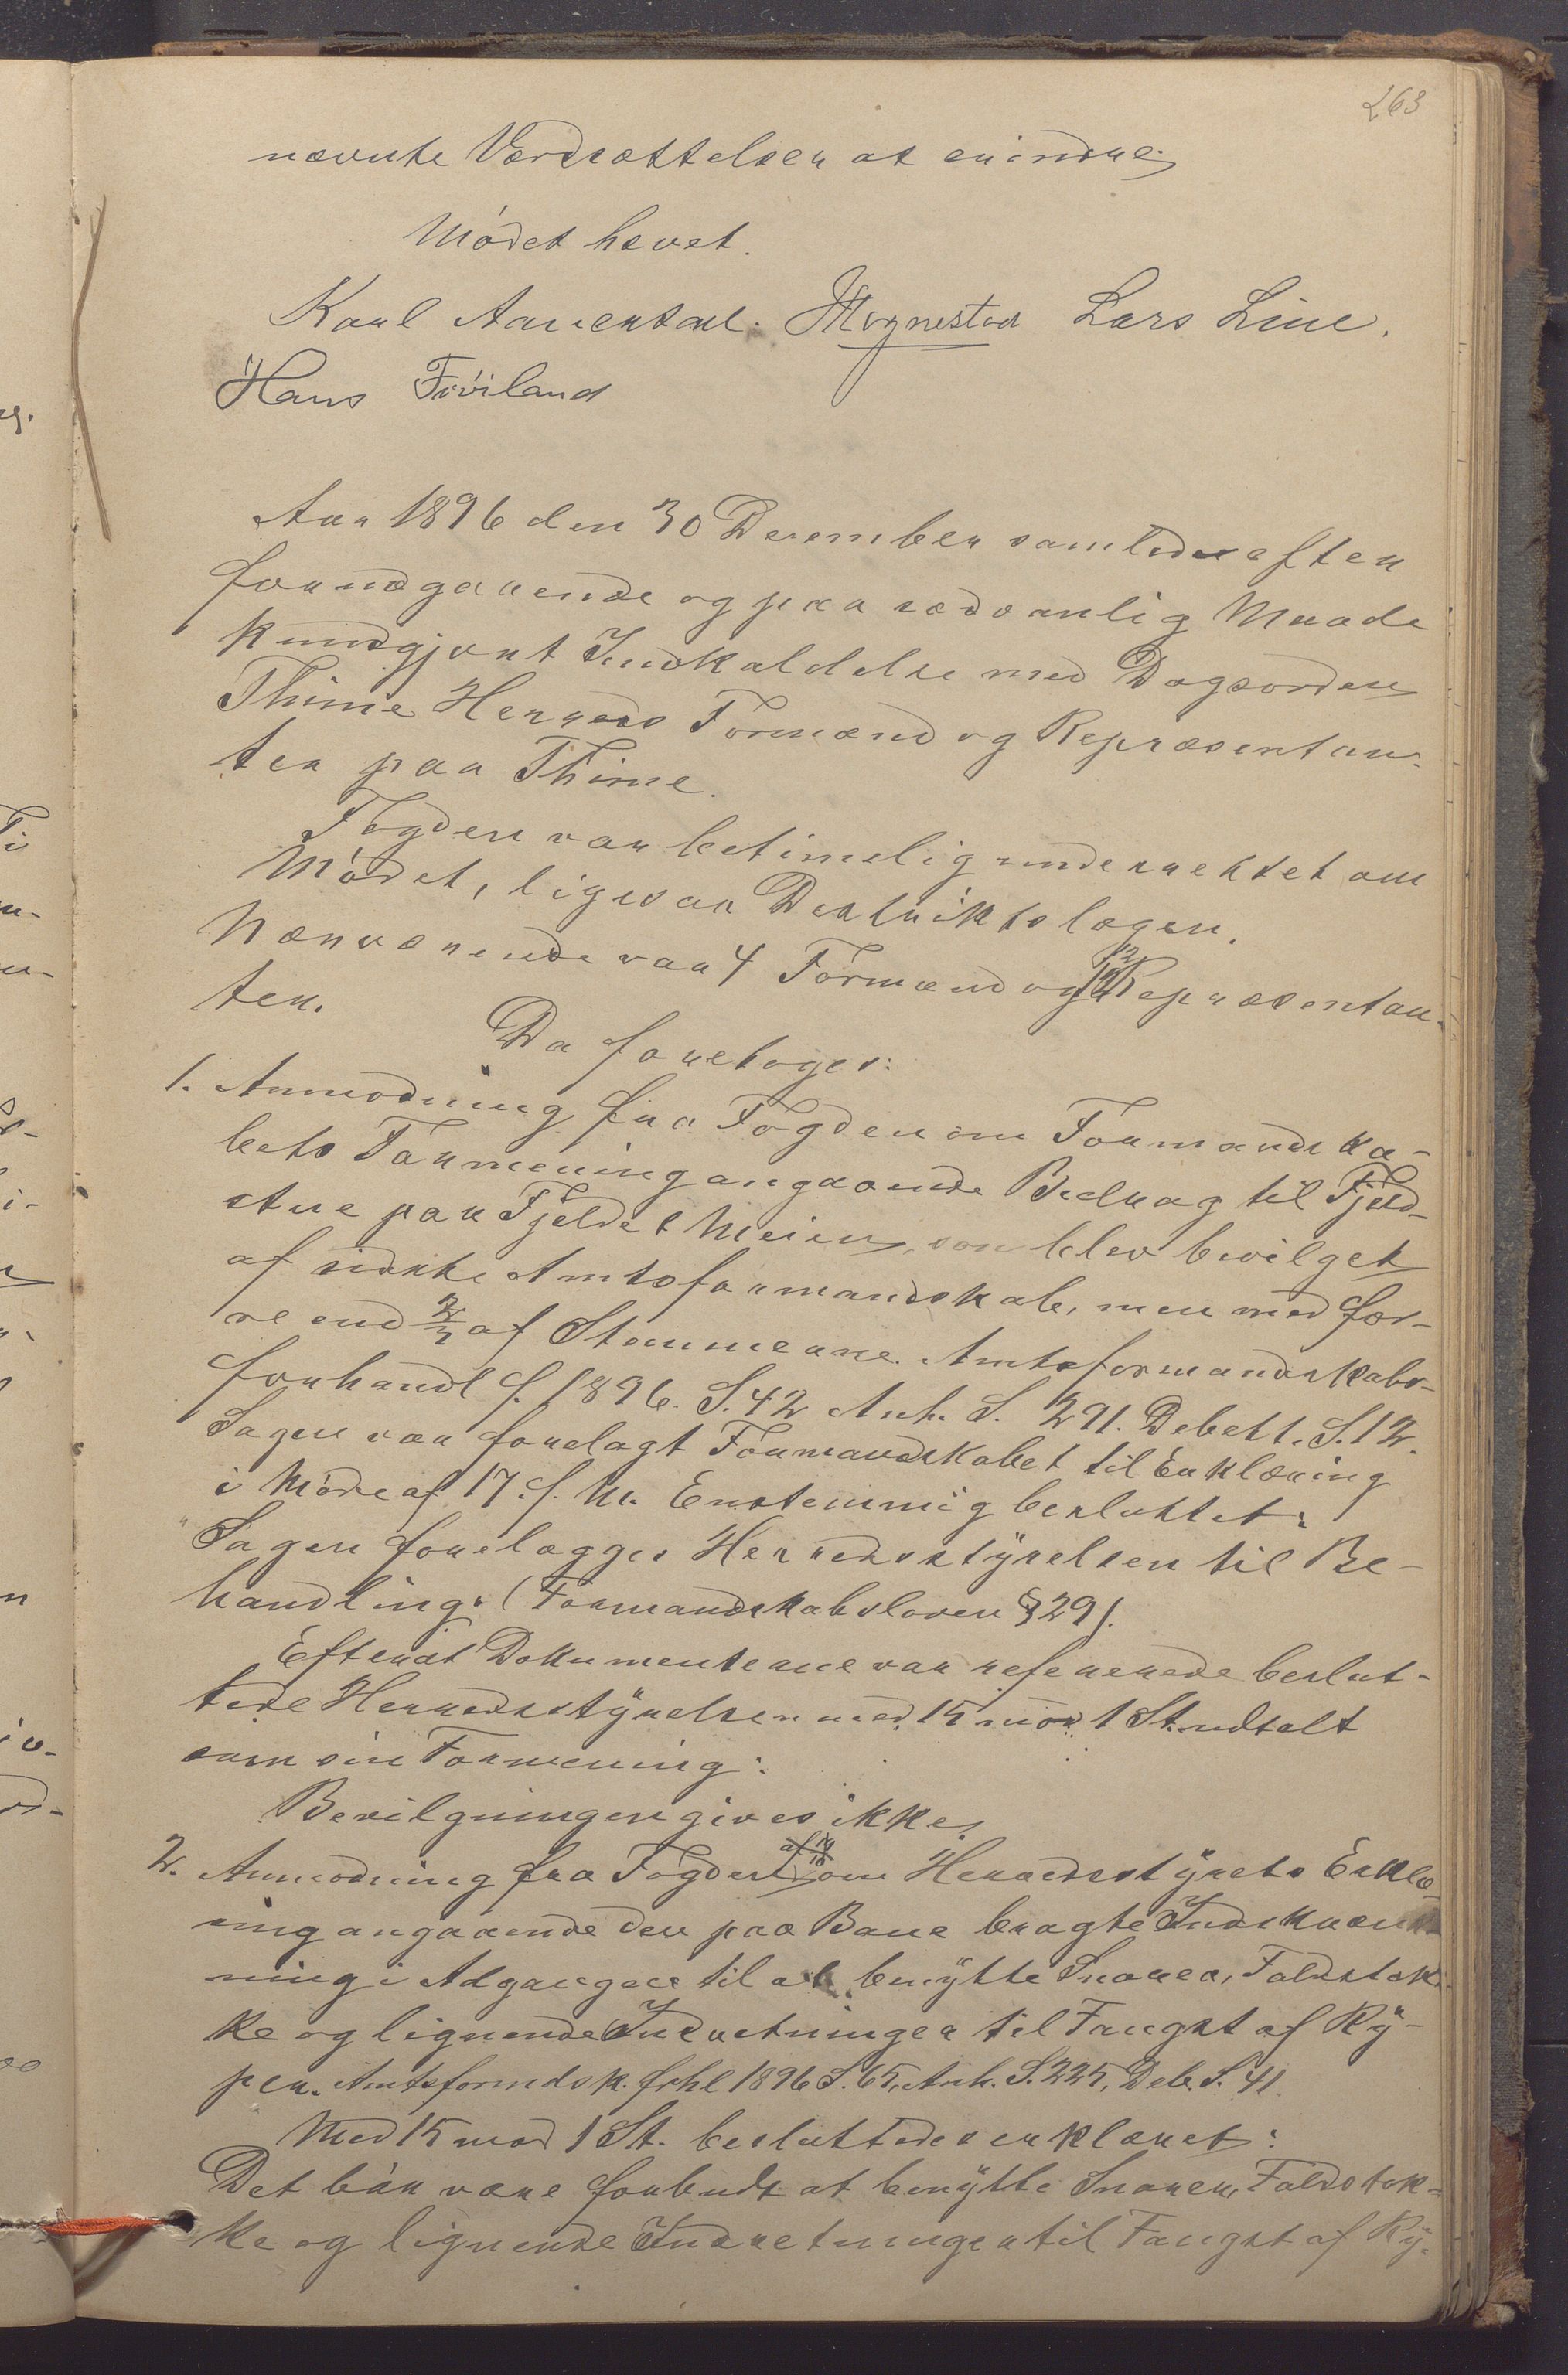 263
nævnte Værdsættelsen at erindre.
Mödet hævet.
Karl Aarrestad. Mognestad Lars Line.
Hans Fröiland
Aar 1896 den 30 December samledes efter
forudgaaende og paa sædvanlig Maade
kundgjort Indkaldelse med Dagsorden
Thime Herreds Formænd og Repræsentan-
ter paa Thime.
Fogden var betimelig underrettet om
Mödet, ligesaa Distriktslægen.
Nærværende var 4 Formænd og 12 Repræsentan-
ter.
Da foretoges:
1. Anmodning fra Fogden om Formandska-
bets Formening angaaende Bidrag til Fjeld-
stue paa Fjeldet Meien, som blev bevilget
af sidste Amtsformandskab, men med fær-
re end 2/3 af Stemmerne. Amtsformandskabs-
forhandl f. 1896. S. 42 Anh. S. 291. Debatt. S. 12.
Sagen var forelagt Formandskabet til Erklæring
i Möde af 17. f. M. Enstemmig besluttet:
"Sagen forelægges Herredsstyrelsen til Be-
handling. (Formandskabsloven § 29).
Efterat Dokumenterne var refererede beslut-
tede Herredsstyrelsen med 15 mod 1 St. udtalt
som sin Formening:
Bevilgningen gives ikke.
2. Anmodning fra Fogden om Herredsstyrets Erklæ-
ring angaaende den paa Bane bragte Indskrænk-
ning i Adgangen til at benytte Snarer, Faldstok-
ke og lignende Indretninger til Fangst af Ry-
per. Amtsformdsk. frhl 1896 S. 65, Anh. S. 225, Deb. S. 41.
Med 15 mod 1 St. besluttedes erklæret:
Det bör være forbudt at benytte Snarer, Faldstok-
ke og lignende Indretninger til Fangst af Ry-